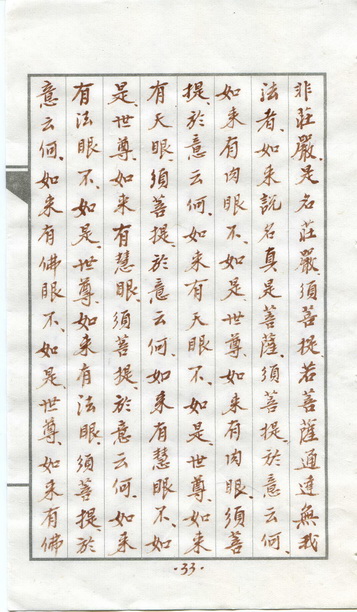 非莊嚴、是名莊嚴、須菩提、若菩薩通達無我
法者、如来說名真是菩薩、須菩提、於意云何、
如来有肉眼不、如是、世尊、如来有肉眼、須菩
提、於意云何、如来有天眼不、如是、世尊、如来
有天眼、須菩提、於意云何、如来有慧眼不、如
是、世尊、如来有慧眼、須菩提、於意云何、如来
有法眼不、如是、世尊、如来有法眼、須菩提、於
意云何、如来有佛眼不、如是、世尊、如来有佛
·33·